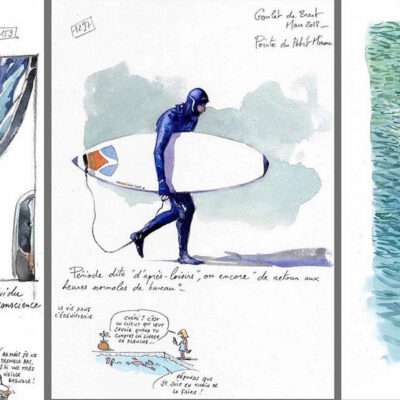 159
vidu
conscience
AU MOINS JE NE
TREMBLE PAS,
J'AI UNE TRÈS
VIEILLE
BAGNOLE !
1297
Goulet de Brest
Mars 2018 _
Pointe du Petit Minou
Période dite "d'après-loisirs", ou encore "de retour aux
heures normales de bureau" _
LA VIE DANS
CHÉRI ? C'EST
UN CLIENT QUI VEUT
SAVOIR QUAND TU
COMPTES LUI LIVRER
SA PLANCHE...
RÉPONDS QUE
JE SUIS EN TRAIN DE
LA FAIRE !